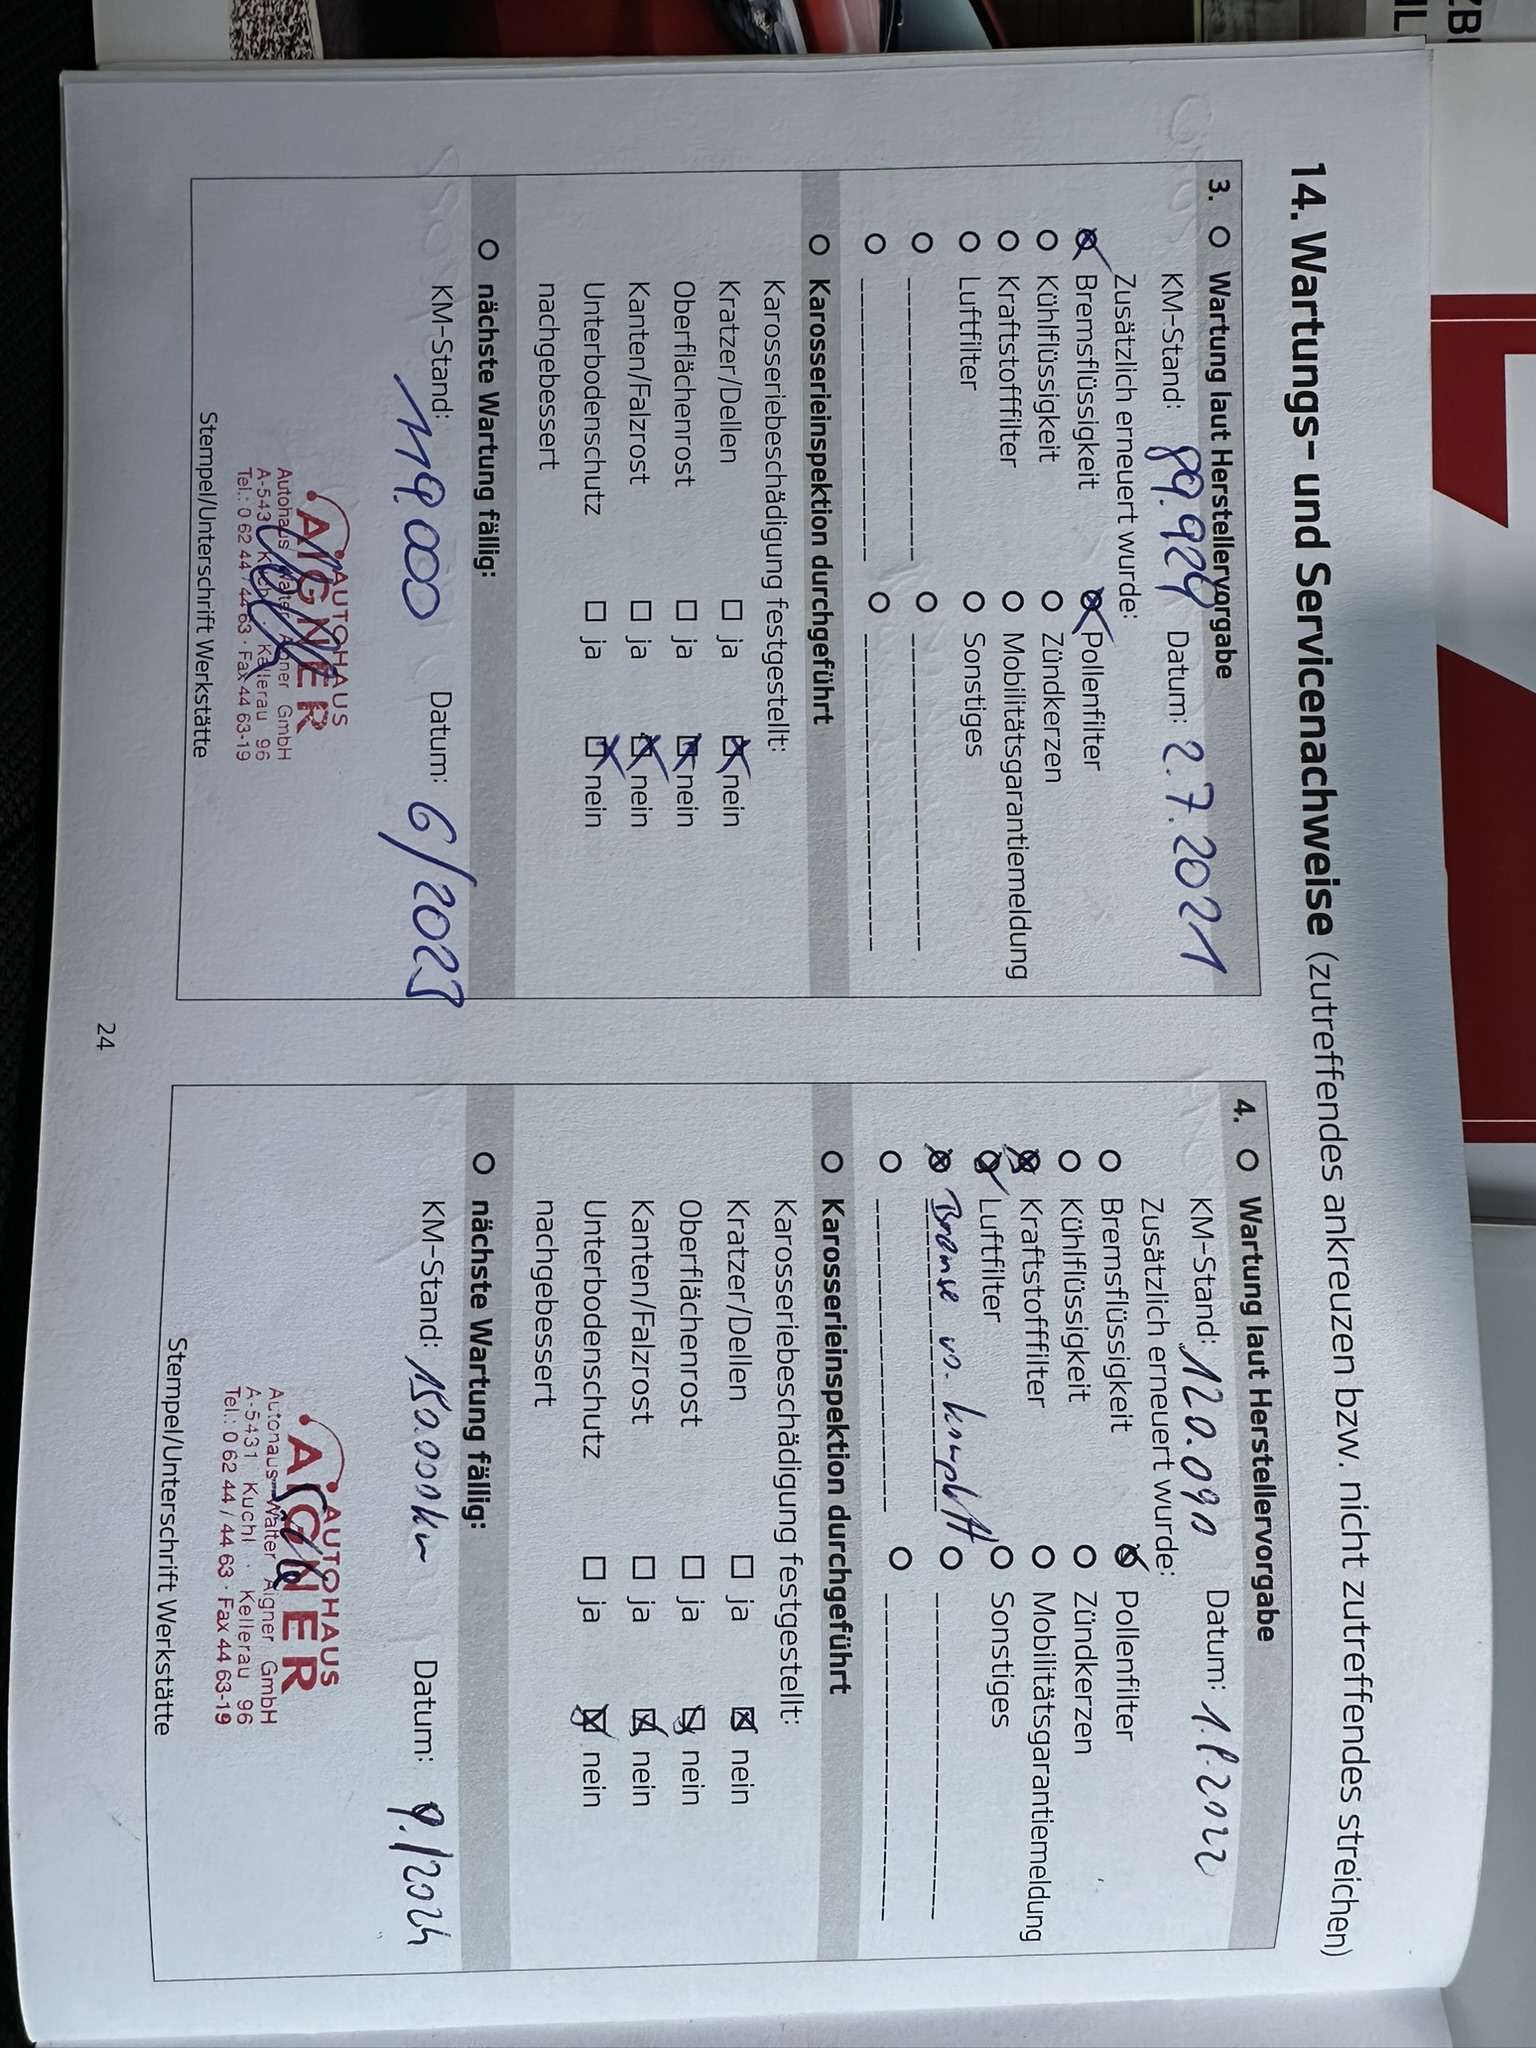 14. Wartungs- und Servicenachweise (zutreffendes ankreuzen bzw. nicht zutreffendes streichen)
3. Wartung laut Herstellervorgabe
KM-Stand: 89.929 Datum: 2.7.2021
Zusätzlich erneuert wurde:
Bremsflüssigkeit Pollenfilter
Kühlflüssigkeit Zündkerzen
Kraftstofffilter Mobilitätsgarantiemeldung
Luftfilter Sonstiges
Karosserieinspektion durchgeführt
Karosseriebeschädigung festgestellt:
Kratzer/Dellen ja nein
Oberflächenrost ja nein
Kanten/Falzrost ja nein
Unterbodenschutz ja nein
nachgebessert
nächste Wartung fällig:
KM-Stand: 119.000 Datum: 6/2023
AUTOHAUS
AIGNER
Autohaus Walter Aigner GmbH
A-5431 Kuchl · Kellerau 96
Tel.: 0 62 44 / 44 63 · Fax 44 63-19
Stempel/Unterschrift Werkstätte
4. Wartung laut Herstellervorgabe
KM-Stand: 120.090 Datum: 1.8.2022
Zusätzlich erneuert wurde:
Bremsflüssigkeit Pollenfilter
Kühlflüssigkeit Zündkerzen
Kraftstofffilter Mobilitätsgarantiemeldung
Luftfilter Sonstiges
Bremse komplett
Karosserieinspektion durchgeführt
Karosseriebeschädigung festgestellt:
Kratzer/Dellen ja nein
Oberflächenrost ja nein
Kanten/Falzrost ja nein
Unterbodenschutz ja nein
nachgebessert
nächste Wartung fällig:
KM-Stand: 150.000km Datum: 9./2024
AUTOHAUS
AIGNER
Autohaus Walter Aigner GmbH
A-5431 Kuchl · Kellerau 96
Tel.: 0 62 44 / 44 63 · Fax 44 63-19
Stempel/Unterschrift Werkstätte
24